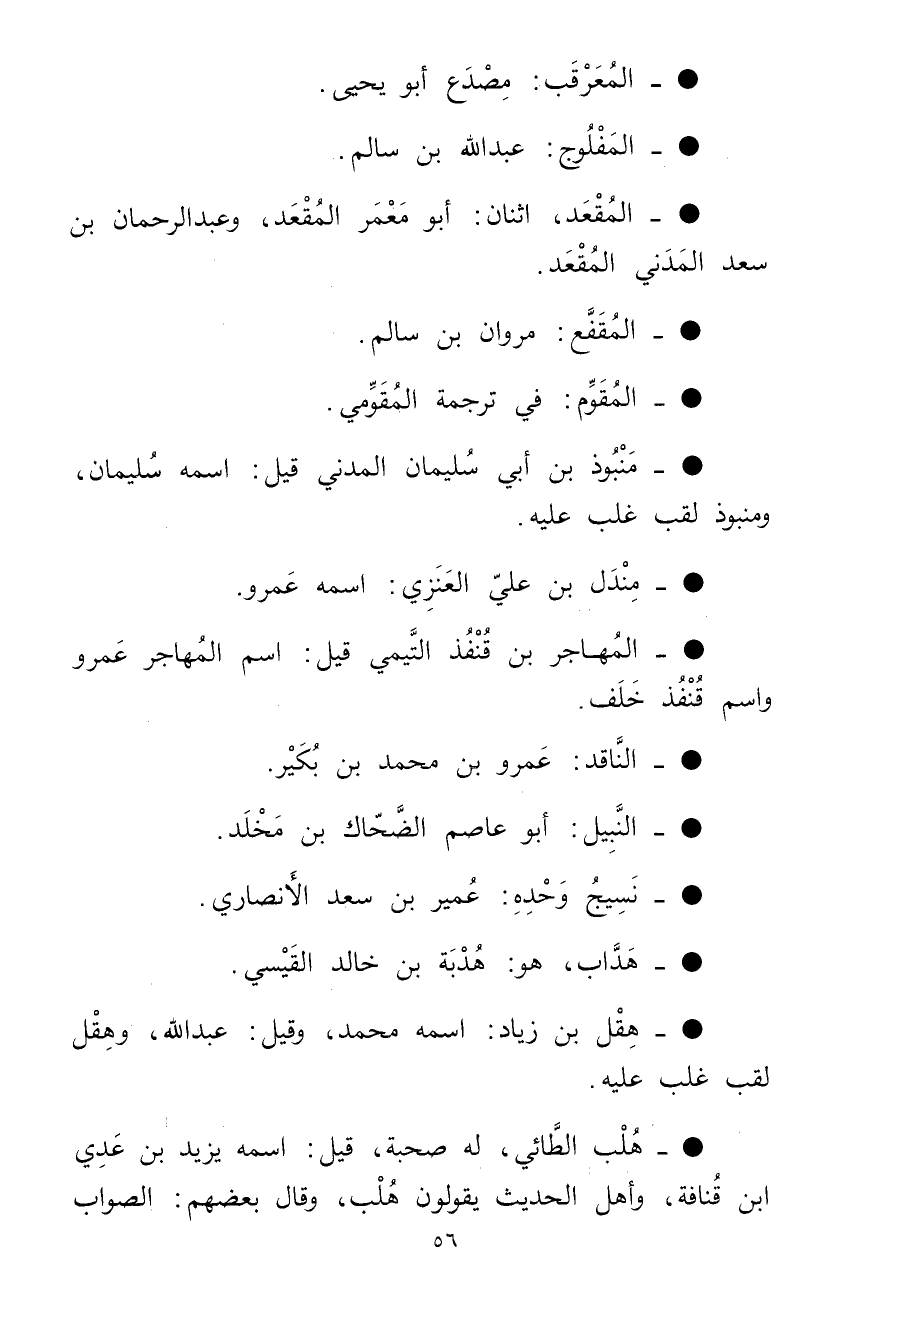 ● ـ المُعَرْقَب: مِصْدَع أبو يحيى.
● ـ المَفْلُوج: عبدالله بن سالم.
● ـ المُقْعَد، اثنان: أبو مَعْمَر المُقْعَد، وعبدالرحمان بن
سعد المَدَني المُقْعَد.
● ـ المُقَفَّع: مروان بن سالم.
● ـ المُقَوِّم: في ترجمة المُقَوِّمي.
● ـ مَنْبُوذ بن أبي سُليمان المدني قيل: اسمه سُليمان،
ومنبوذ لقب غلب عليه.
● ـ مِنْدَل بن عليّ العَنَزِي: اسمه عَمرو.
● ـ المُهاجر بن قُنْفُذ التَّيمي قيل: اسم المُهاجر عَمرو
واسم قُنْفُذ خَلَف.
● ـ النَّاقد: عَمرو بن محمد بن بُكَيْر.
● ـ النَّبِيل: أبو عاصم الضَّحّاك بن مَخْلَد.
● ـ نَسِيجُ وَحْدِهِ: عُمير بن سعد الأَنصاري.
● ـ هَدَّاب، هو: هُدْبَة بن خالد القَيْسي.
● ـ هِقْل بن زياد: اسمه محمد، وقيل: عبدالله، وهِقْل
لقب غلب عليه.
● ـ هُلْب الطَّائي، له صحبة، قيل: اسمه يزيد بن عَدِي
ابن قُنافة، وأهل الحديث يقولون هُلْب، وقال بعضهم: الصواب
٥٦